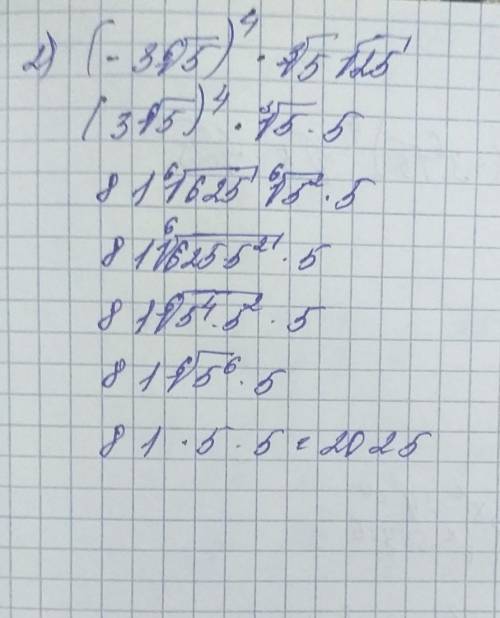 2) (-3⁶√5)⁴ · ³√5 √25
(3⁶√5)⁴ · ³√5 · 5
81 ⁶√625 ⁶√5² · 5
81 ⁶√625·5² · 5
81 ⁶√5⁴·5² · 5
81 ⁶√5⁶ · 5
81 · 5 · 5 = 2025